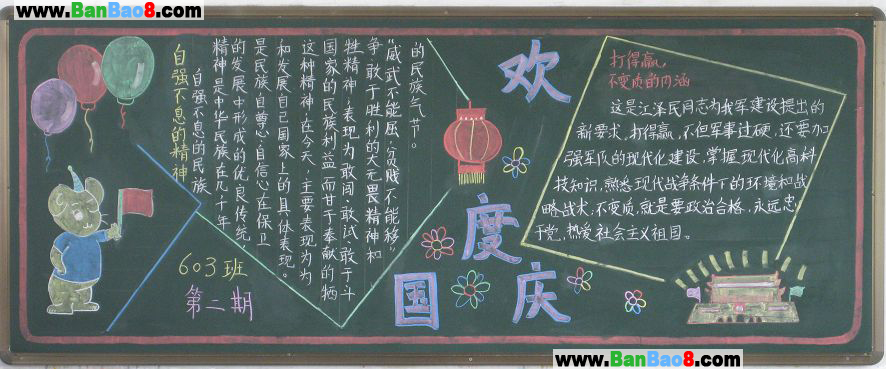 www.BanBao8.com
自强不息的精神
自强不息的民族
精神是中华民族在几千年
的发展中形成的优良传统
是民族自尊心、自信心在保卫
和发展自己国家上的具体表现。
这种精神，在今天，主要表现为为
国家的民族利益而甘于奉献的牺
牲精神，表现为敢闯、敢试、敢于斗
争、敢于胜利的大无畏精神和
“威武不能屈，贫贱不能移”
的民族气节。
603班
第二期
欢
度
国
庆
打得赢，
不变质的内涵
这是江泽民同志为我军建设提出的
新要求，打得赢，不但军事过硬，还要加
强军队的现代化建设，掌握现代化高科
技知识，熟悉现代战争条件下的环境和战
略战术，不变质，就是要政治合格，永远忠
于党，热爱社会主义祖国。
www.BanBao8.com
www.BanBao8.com